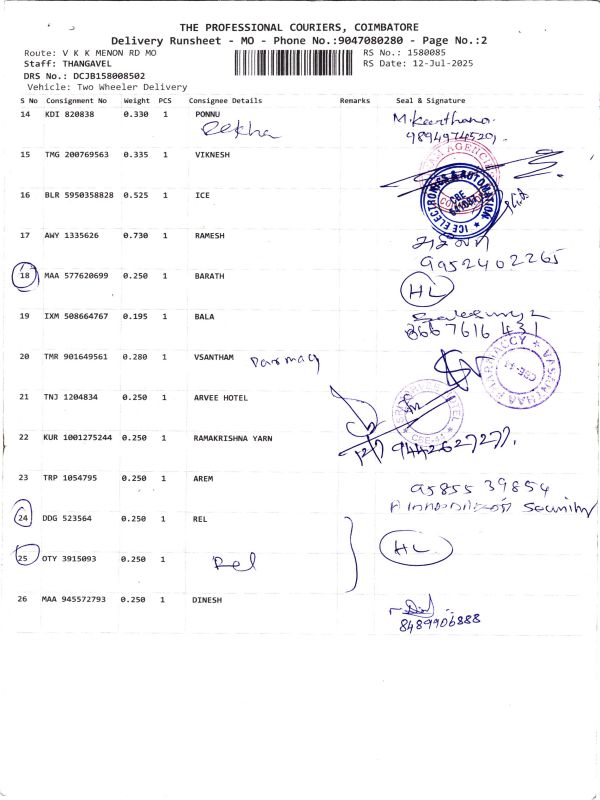 THE PROFESSIONAL COURIERS, COIMBATORE
Delivery Runsheet - MO - Phone No.:9047080280 - Page No.:2
Route: V K K MENON RD MO RS No.: 1580085
Staff: THANGAVEL RS Date: 12-Jul-2025
DRS No.: DCJB158008502
Vehicle: Two Wheeler Delivery
S No Consignment No Weight PCS Consignee Details Remarks Seal & Signature
14 KDI 820838 0.330 1 PONNU M.Keerthana
Rekha 9894974520
15 TMG 200769563 0.335 1 VIKNESH
16 BLR 5950358828 0.525 1 ICE
ICE ELECTRONICS & AUTOMATION
CBE
17 AWY 1335626 0.730 1 RAMESH
9952402265
18 MAA 577620699 0.250 1 BARATH HL
19 IXM 508664767 0.195 1 BALA
8667616431
20 TMR 901649561 0.280 1 VSANTHAM Parmacy
VASANTHAM PHARMACCY
CBE-41
21 TNJ 1204834 0.250 1 ARVEE HOTEL
CBE-41
22 KUR 1001275244 0.250 1 RAMAKRISHNA YARN 9442627277
23 TRP 1054795 0.250 1 AREM 95855 39854
Security
24 DDG 523564 0.250 1 REL
25 OTY 3915093 0.250 1 Rel HL
26 MAA 945572793 0.250 1 DINESH
8489906888